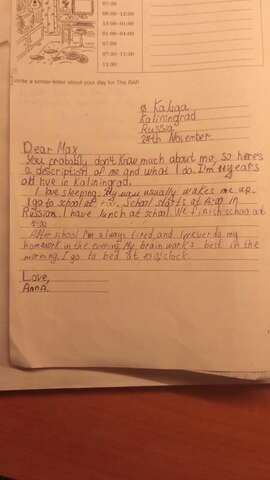 07:00
08:00-12:00
13:00
01:00-04:00
07:00
07:30-11:30
12:00
Write a similar letter about your day for The RAP
Kaluga,
Kaliningrad
Russia
24th November
Dear Max
You probably don't know much about me, so here's
a description of me and what I do. I'm years
old live in Kaliningrad.
I love sleeping. My usually wakes me up
I go to school at School starts at in
Russian. I have lunch at school. We finish school at
After school I'm always tired and I never do my
homework in the evening. My brain works best in the
morning. I go to bed at o'clock
Love,
Anna.